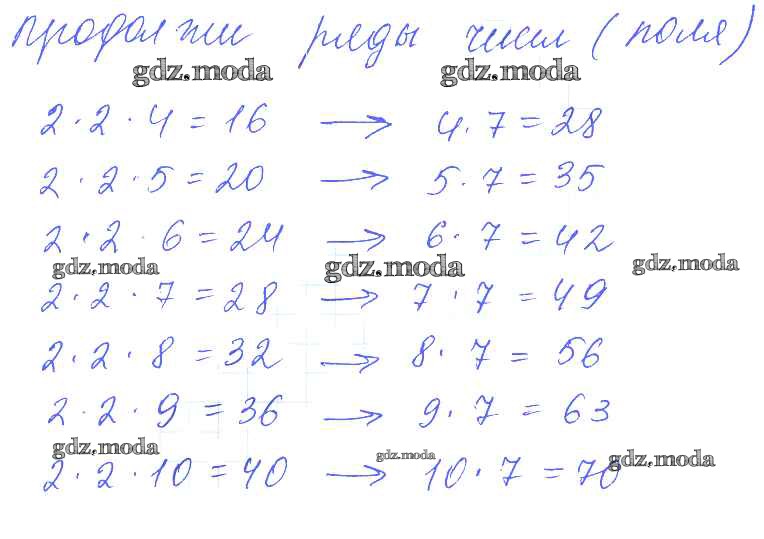 продолжи ряды чисел (поля)
gdz.moda gdz.moda
2 · 2 · 4 = 16 → 4 · 7 = 28
2 · 2 · 5 = 20 → 5 · 7 = 35
2 · 2 · 6 = 24 → 6 · 7 = 42
gdz.moda gdz.moda gdz.moda
2 · 2 · 7 = 28 → 7 · 7 = 49
2 · 2 · 8 = 32 → 8 · 7 = 56
2 · 2 · 9 = 36 → 9 · 7 = 63
gdz.moda gdz.moda gdz.moda
2 · 2 · 10 = 40 → 10 · 7 = 70